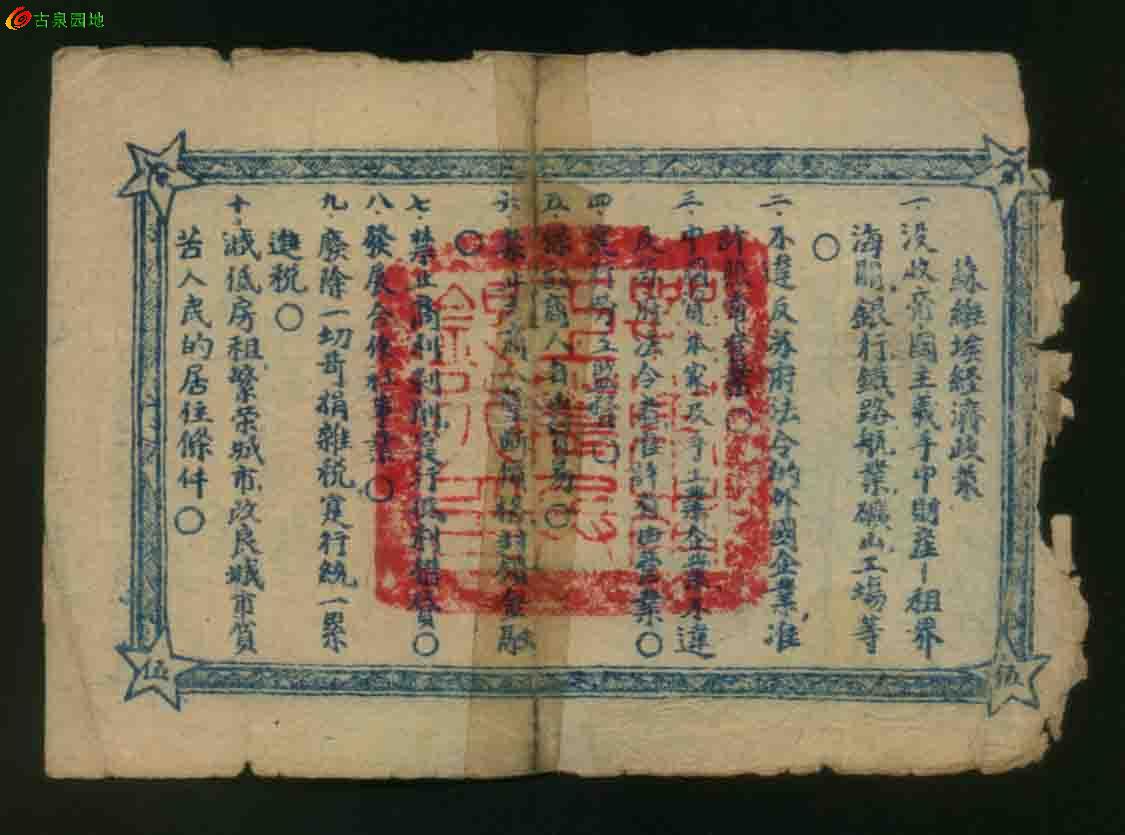 古泉园地
蘇維埃經濟政策
一．没收帝國主義手中財產—租界
海関、銀行鐵路航業、礦山工場等
○
二．不違反苏府法令的外國企業、准
許照
○
三．中國資本家及手工業企業、不違
反苏府法令者准許
業○
四．
○
五．商人自由貿易○
六．禁止商人壟斷價格封鎖金融
○
七．禁止高利剝削实行低利借貸○
八．發展合作社事業○
九．廢除一切苛捐雜税寔行統一累
進税○
十．减低房租繁荣城市、改良城市貧
苦人民的居住條件○
伍
伍